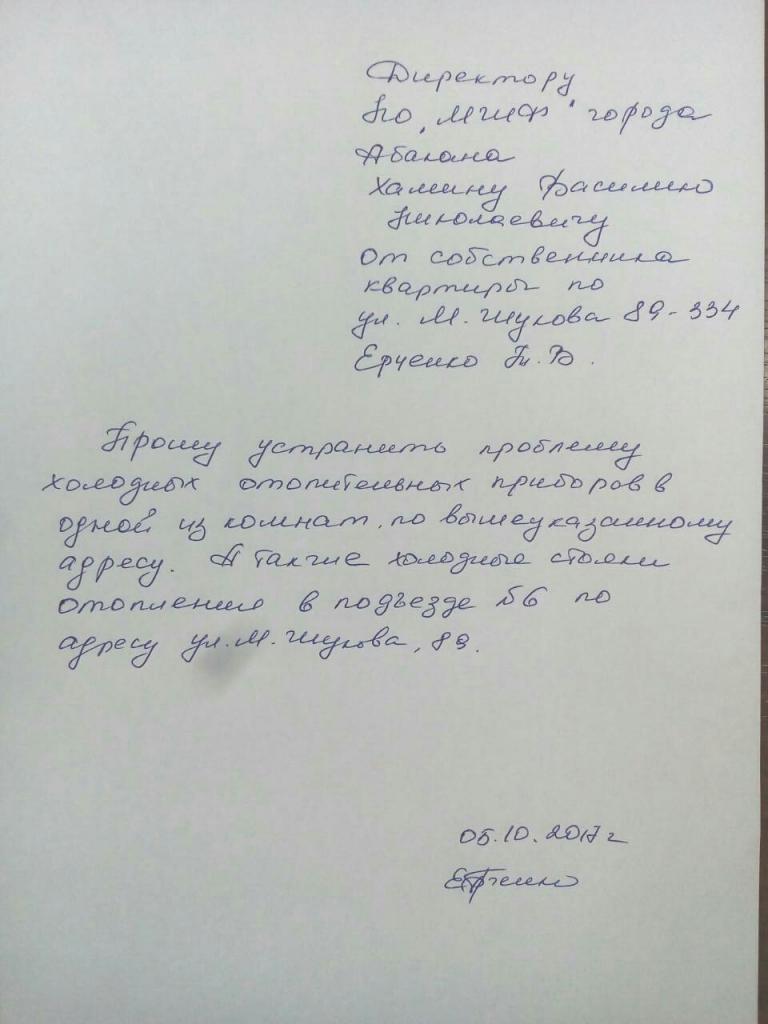 Директору
ПО "МЖФ" города
Абакана
Хамину Василию
Николаевичу
От собственника
квартиры по
ул. М. Жукова 89-334
Ерченко Т. В.
Прошу устранить проблему
холодных отопительных приборов в
одной из комнат, по вышеуказанному
адресу. А также холодные стояки
отопления в подъезде №6 по
адресу ул. М. Жукова, 89.
05.10.2017г
Ерченко